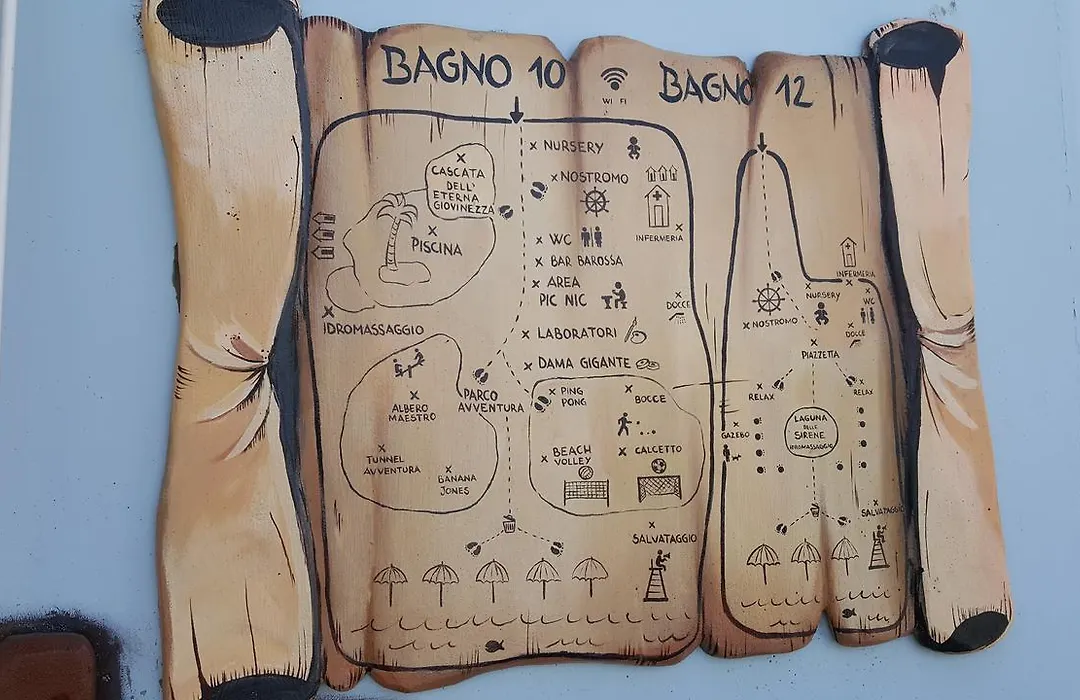 BAGNO 10
WI FI
BAGNO 12
CASCATA
DELL'
ETERNA
GIOVINEZZA
PISCINA
IDROMASSAGGIO
NURSERY
NOSTROMO
INFERMERIA
WC
BAR BAROSSA
AREA
PIC NIC
DOCCE
LABORATORI
DAMA GIGANTE
PARCO
AVVENTURA
ALBERO
MAESTRO
TUNNEL
AVVENTURA
BANANA
JONES
PING
PONG
BOCCE
BEACH
VOLLEY
CALCETTO
SALVATAGGIO
INFERMERIA
NURSERY
WC
NOSTROMO
DOCCE
PIAZZETTA
RELAX
RELAX
GAZEBO
LAGUNA
DELLE
SIRENE
IDROMASSAGGIO
SALVATAGGIO